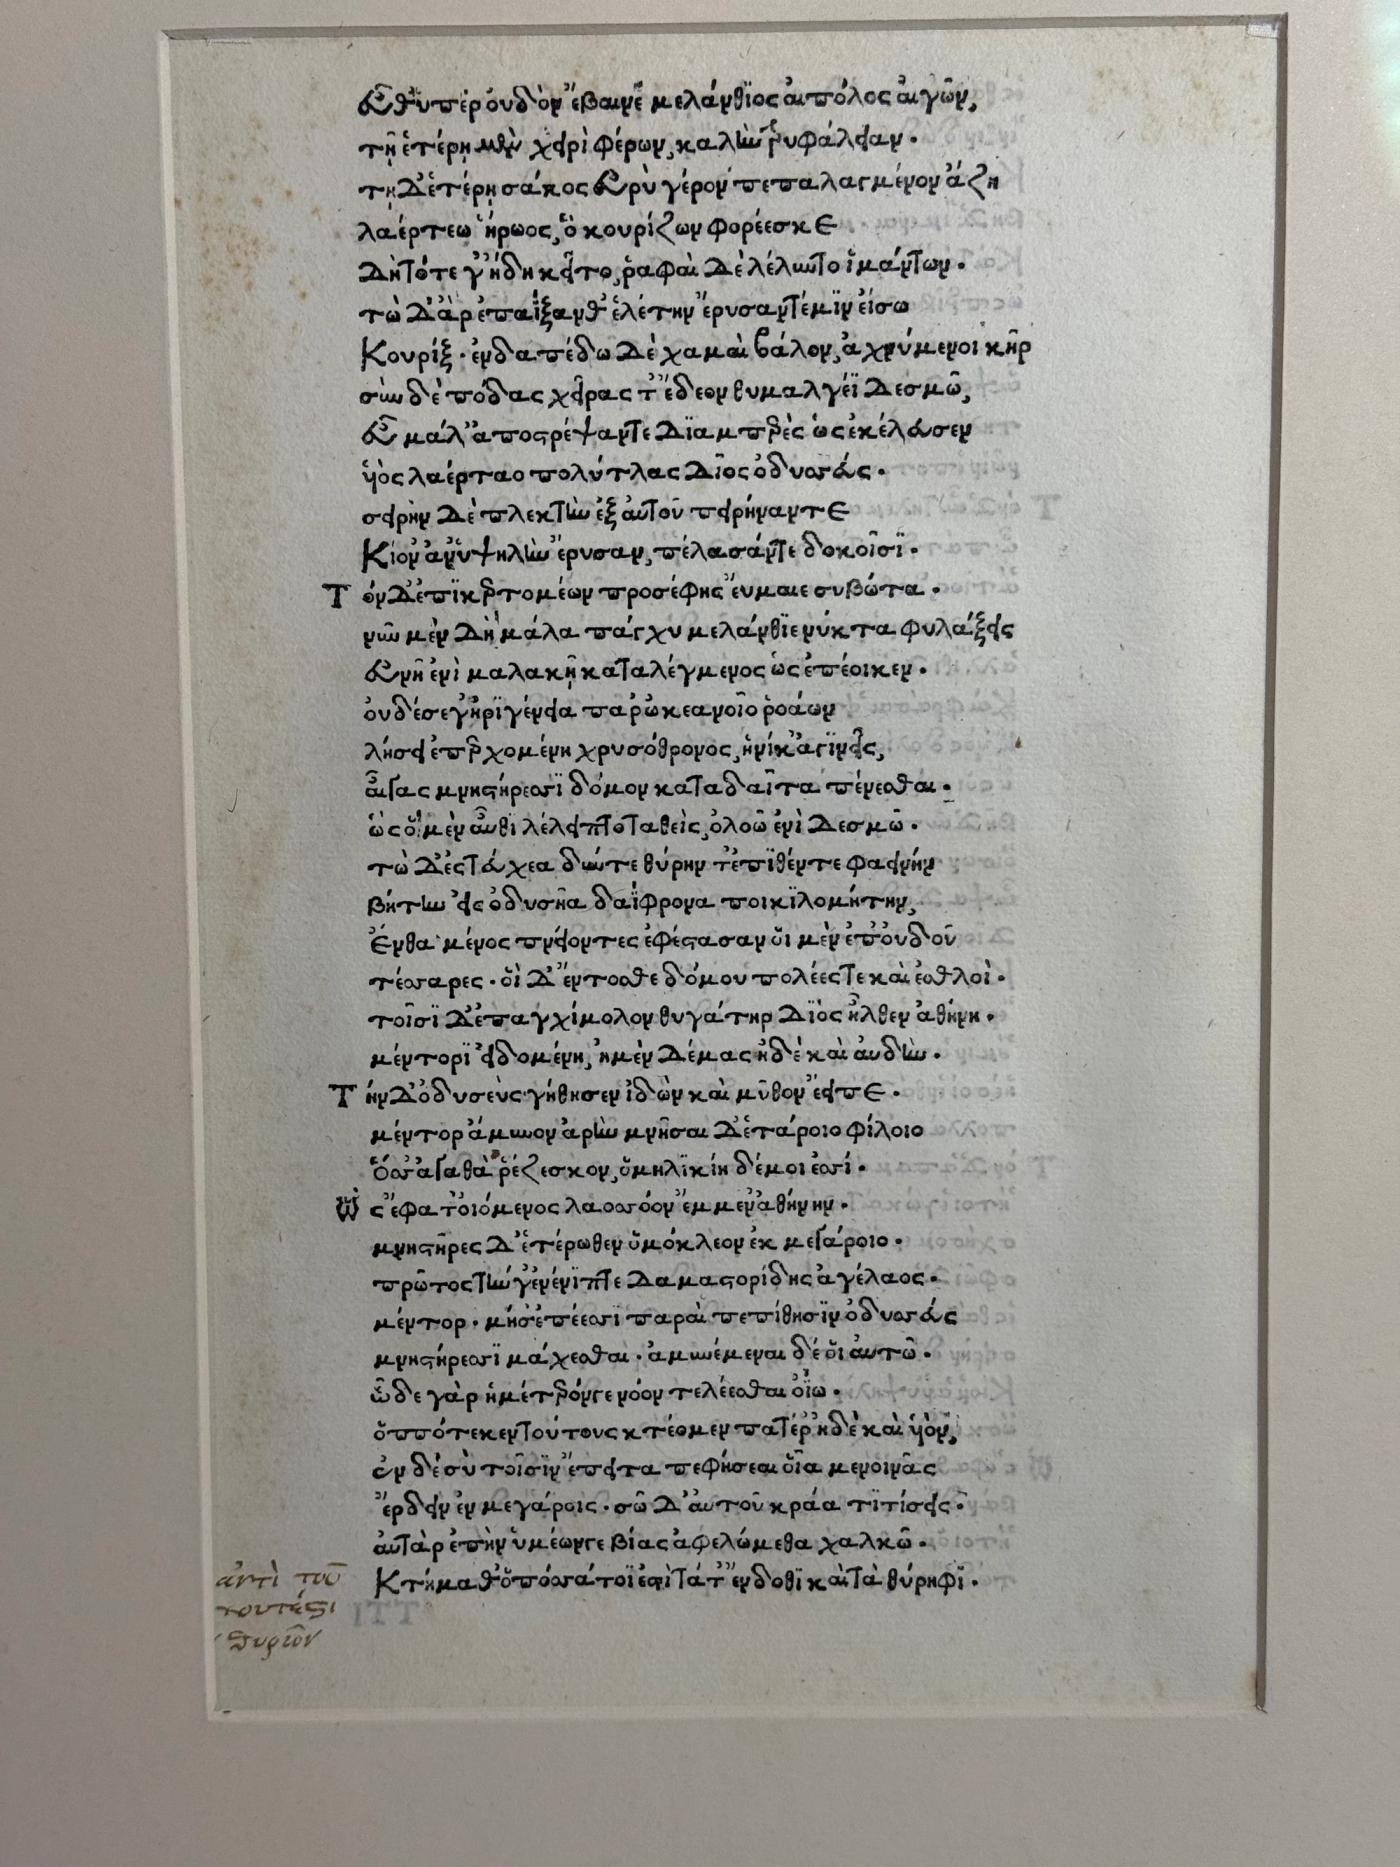 Εὖθ' ὑπὲρ ὀυδὸν ἔβαινε μελάνθϊος ἀιπόλος ἀιγῶν,
τῇ ἑτέρῃ μὲν χειρὶ φέρων, καλὴν τρυφάλειαν.
τῇ Δ' ἑτέρῃ σάκος ευρὺ γέρον πεπαλαγμένον ἄζη
λαέρτεω ἥρωος, ὃ κουρίζων φορέεσκε
Δὴ τότε γ' ἤδη κεῖτο, ῥαφαὶ Δὲ λέλυντο ἱμάντων.
τὼ Δ' ἂρ ἐπαΐξανθ' ἑλέτην ἔρυσαντέ μϊν ἐίσω
Κουρίξ. ἐν δαπέδω Δὲ χαμαὶ βάλον, ἀχνύμενοι κῆρ
σὺν δὲ πόδας χεῖρας τ' ἔδεον θυμαλγέϊ Δεσμῶ,
εὖ μάλ' ἀποστρέψαντε Δϊαμπερὲς ὡς ἐκέλευσεν
ὑιὸς λαέρταο πολύτλας Δῖος ὀδυσσεύς.
σειρὴν Δὲ πλεκτὴν ἐξ ἀυτοῦ πειρήναντε
Κίον' ἀν' ὑψηλὴν ἔρυσαν, πέλασάν τε δοκοῖσϊ.
Τὸν Δ' ἐπϊκερτομέων προσέφης ἔυμαιε συβώτα.
νῦν μὲν Δὴ μάλα πάγχυ μελάνθϊε νύκτα φυλάξεις
ευνῇ ἐνὶ μαλακῇ καταλέγμενος ὡς ἐπέοικεν.
ὀυδέ σέ γ' ἠρϊγένεια παρ' ὠκεανοῖο ῥοάων
λήσει ἐπερχομένη χρυσόθρονος, ἡνίκ' ἀγϊνεῖς,
ἆιγας μνηστήρεσσϊ δόμον κάτα δαῖτα πένεσθαι.
ὣς ὃ μὲν ἆυθι λέλειπτο ταθεὶς, ὀλοῶ ἐνὶ Δεσμῶ.
τὼ Δ' ἐς τεύχεα δύντε θύρην τ' ἐπϊθέντε φαεινήν
βήτην εἰς ὀδυσῆα δαΐφρονα ποικϊλομήτην,
Ἔνθα μένος πνείοντες ἐφέστασαν ὅι μὲν ἐπ' ὀυδοῦ
τέσσαρες. ὅι Δ' ἔντοσθε δόμου πολέες τε καὶ ἐσθλοὶ.
τοῖσϊ Δ' ἐπ' αγχίμολον θυγάτηρ Δϊὸς ἦλθεν ἀθήνη.
μέντορϊ ειδομένη, ἠμὲν Δέμας ἠδὲ καὶ ἀυδὴν.
Τὴν Δ' ὀδυσεὺς γήθησεν ἰδὼν καὶ μῦθον ἔειπε.
μέντορ ἄμυνον ἀρὴν μνῆσαι Δ' ἑτάροιο φίλοιο
ὅς σ' ἀγαθὰ ῥέζεσκον, ὁμηλϊκίη δέ μοι ἐσσί.
Ὣς ἔφατ' οιόμενος λαοσσόον ἔμμεν ἀθήνην.
μνηστῆρες Δ' ἑτέρωθεν ὁμόκλεον ἐκ μεγάροιο.
πρῶτος τήν γ' ἐνένϊπτε Δαμαστορίδης ἀγέλαος.
μέντορ. μή σ' ἐπέεσσϊ παραὶ πεπίθησϊν ὀδυσσεύς
μνηστήρεσσϊ μάχεσθαι. ἀμυνέμεναι δέ ὁι ἀυτῶ.
ὧδε γὰρ ἡμέτερόν γε νόον τελέεσθαι ὀΐω.
ὁππότε κεν τούτους κτέομεν πατέρ' ἠδὲ καὶ ὑιόν,
ἐν δὲ σὺ τοῖσϊν ἔπειτα πεφήσεαι ὅια μενοινᾶς
ἔρδειν ἐν μεγάροις. σῶ Δ' ἀυτοῦ κράα τϊτίσεις.
ἀυτὰρ ἐπὴν ὑμέων γε βίας ἀφελώμεθα χαλκῶ.
Κτήμαθ' ὁπόσσά τοϊ ἐστὶ τά τ' ἔνδοθϊ καὶ τὰ θύρηφϊ.
ἀντὶ τοῦ
τουτέστι
θυρῶν